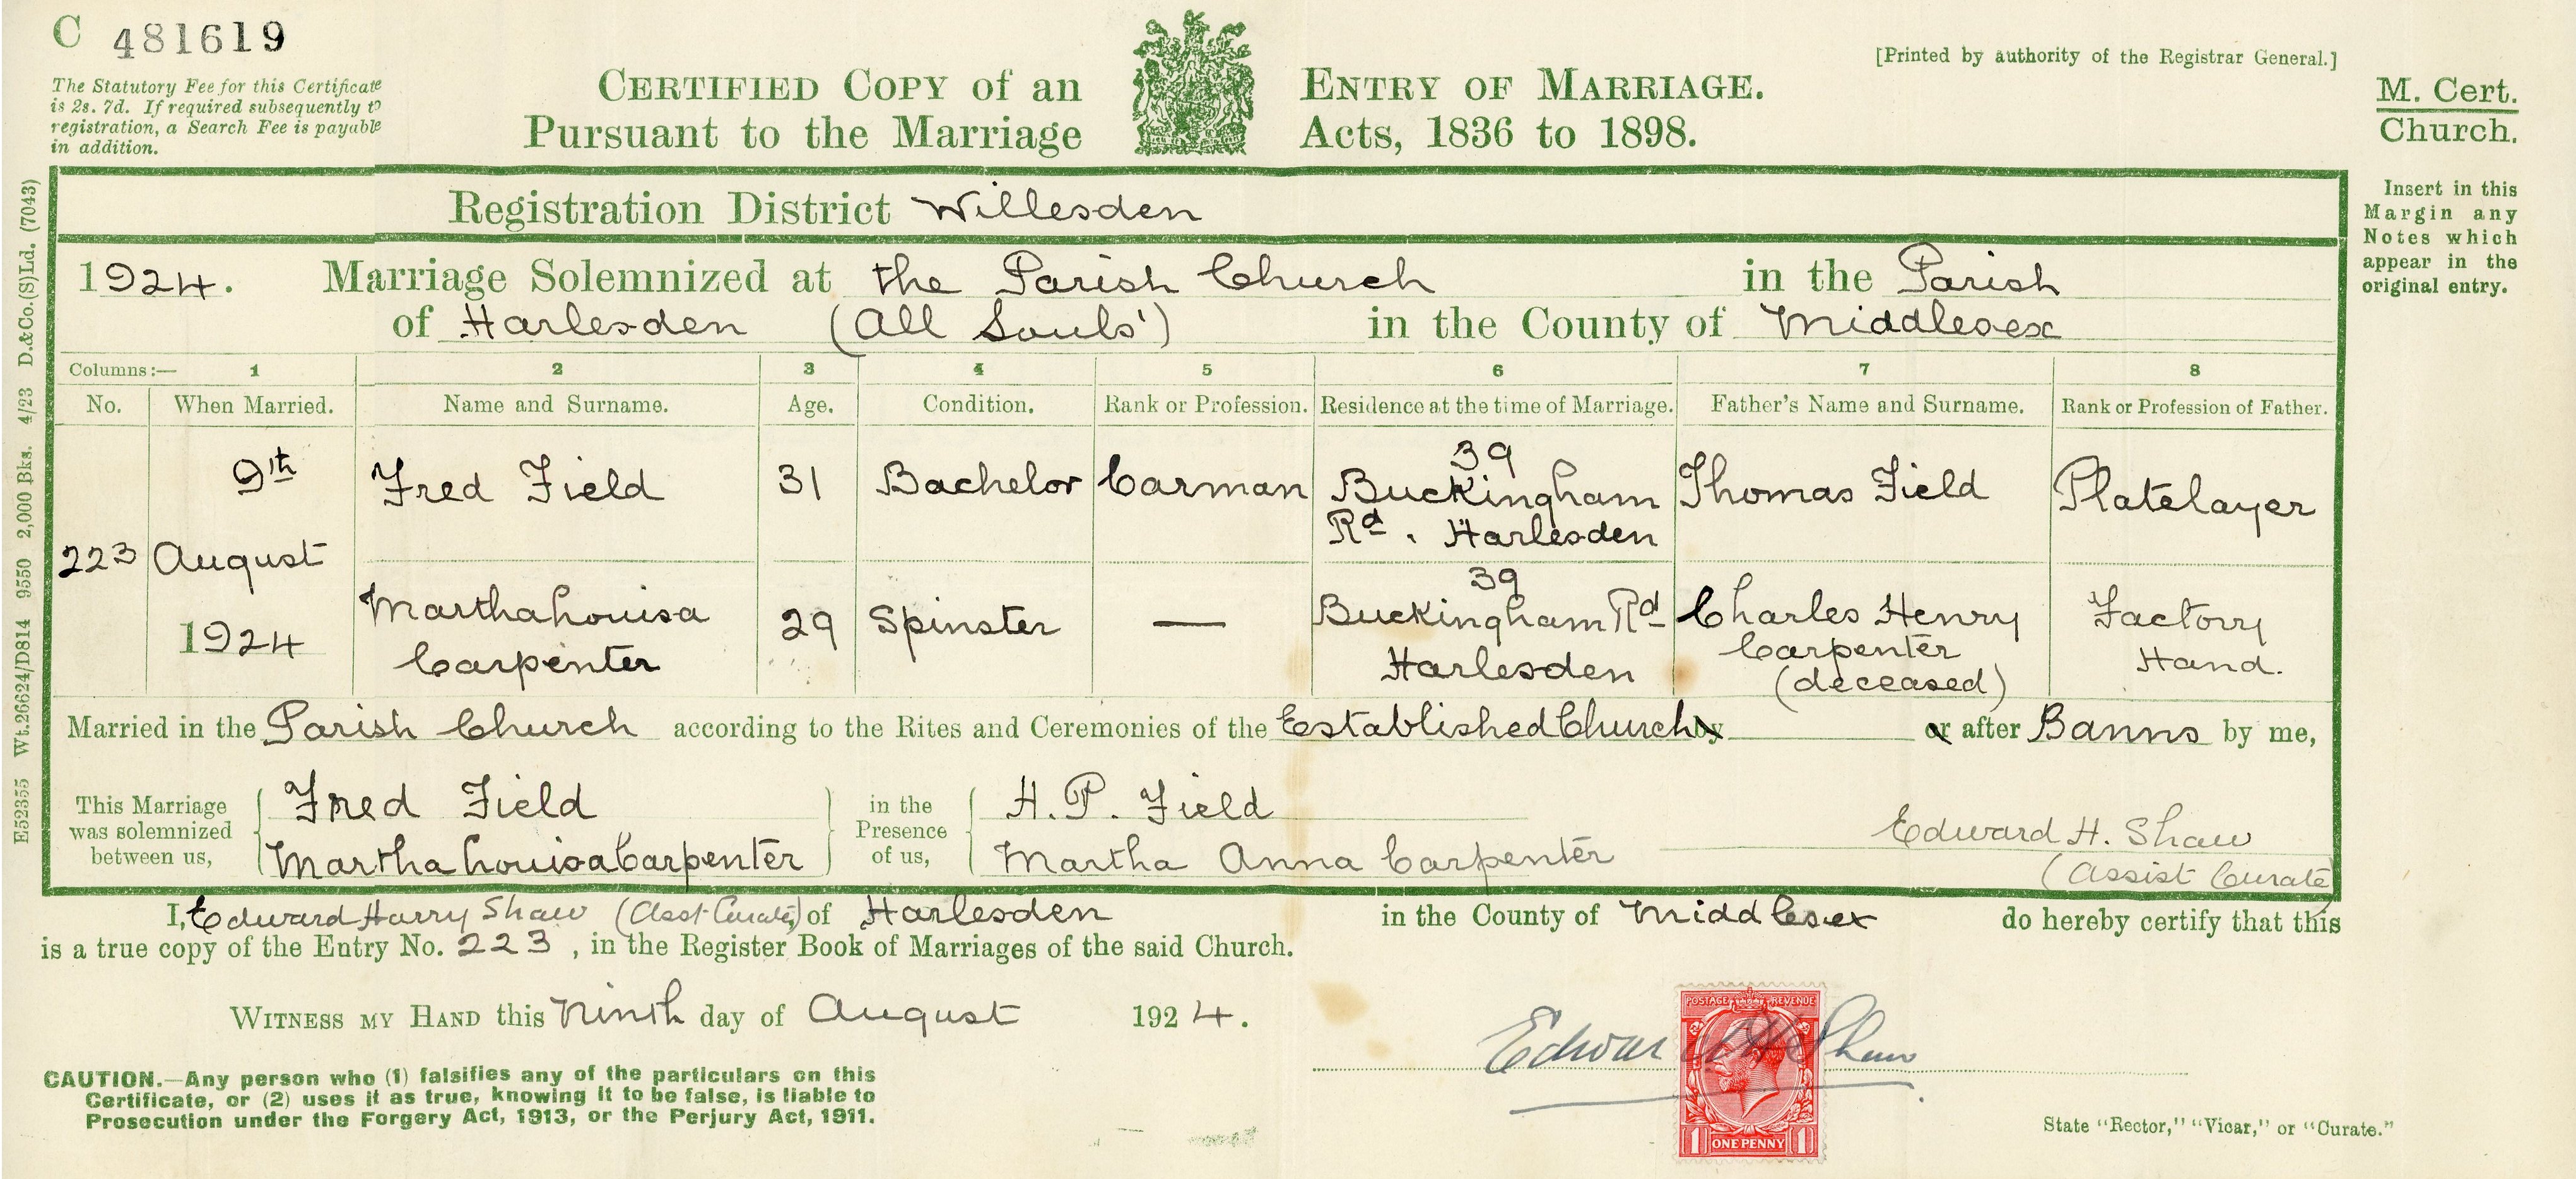 C 481619
The Statutory Fee for this Certificate
is 2s. 7d. If required subsequently to
registration, a Search Fee is payable
in addition.
CERTIFIED COPY of an ENTRY OF MARRIAGE.
Pursuant to the Marriage Acts, 1836 to 1898.
[Printed by authority of the Registrar General.]
M. Cert.
Church.
Insert in this
Margin any
Notes which
appear in the
original entry.
E52355 Wt.26624/D814 9550 2,000 Bks. 4/23 D.&Co.(S)Ld. (7043)
Registration District Willesden
1924. Marriage Solemnized at the Parish Church in the Parish
of Harlesden (All Souls') in the County of Middlesex
Columns:— 1 2 3 4 5 6 7 8
No. When Married. Name and Surname. Age. Condition. Rank or Profession. Residence at the time of Marriage. Father's Name and Surname. Rank or Profession of Father.
223
9th
August
1924
Fred Field 31 Bachelor Carman
39
Buckingham
Rd. Harlesden
Thomas Field Platelayer
Martha Louisa
Carpenter
29 Spinster —
39
Buckingham Rd
Harlesden
Charles Henry
Carpenter
(deceased)
Factory
Hand.
Married in the Parish Church according to the Rites and Ceremonies of the Established Church by or after Banns by me,
This Marriage
was solemnized
between us,
Fred Field
Martha Louisa Carpenter
in the
Presence
of us,
H. P. Field
Martha Anna Carpenter
Edward H. Shaw
(Assist Curate)
I, Edward Harry Shaw (Asst Curate) of Harlesden in the County of Middlesex do hereby certify that this
is a true copy of the Entry No. 223, in the Register Book of Marriages of the said Church.
WITNESS MY HAND this Ninth day of August 1924.
Edward H Shaw
POSTAGE REVENUE
1 ONE PENNY 1
CAUTION.—Any person who (1) falsifies any of the particulars on this
Certificate, or (2) uses it as true, knowing it to be false, is liable to
Prosecution under the Forgery Act, 1913, or the Perjury Act, 1911.
State "Rector," "Vicar," or "Curate."